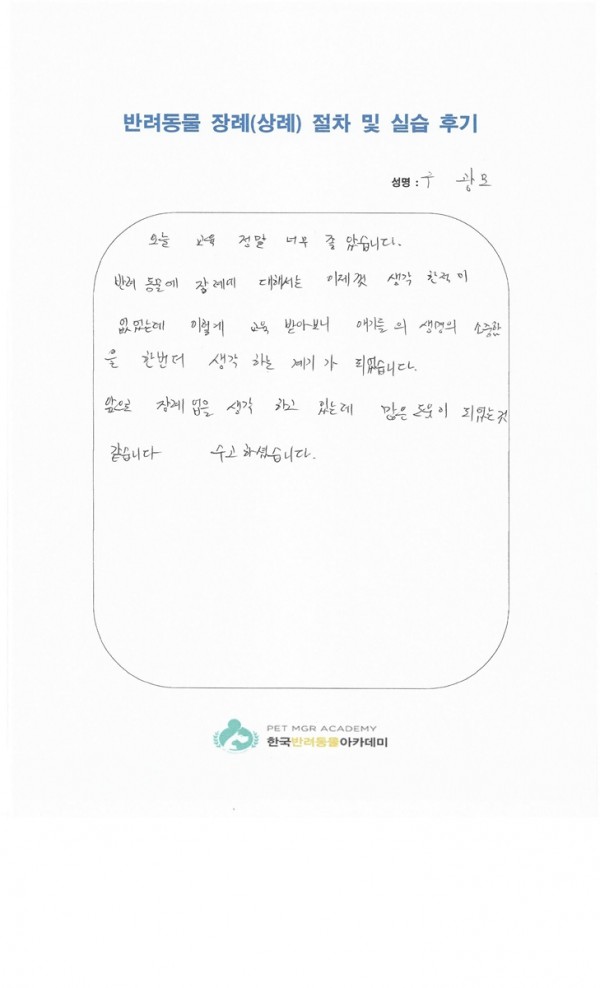 반려동물 장례(상례) 절차 및 실습 후기
성명 : 구 광모
오늘 교육 정말 너무 좋 았습니다.
반려 동물에 장례에 대해서는 이제껏 생각 한적이
없었는데 이렇게 교육 받아보니 애기들의 생명의 소중함
을 한번더 생각 하는 계기가 되었습니다.
앞으로 장례 업을 생각 하고 있는데 많은 도움이 되었는것
같습니다 수고하셨습니다.
PET MGR ACADEMY
한국반려동물아카데미